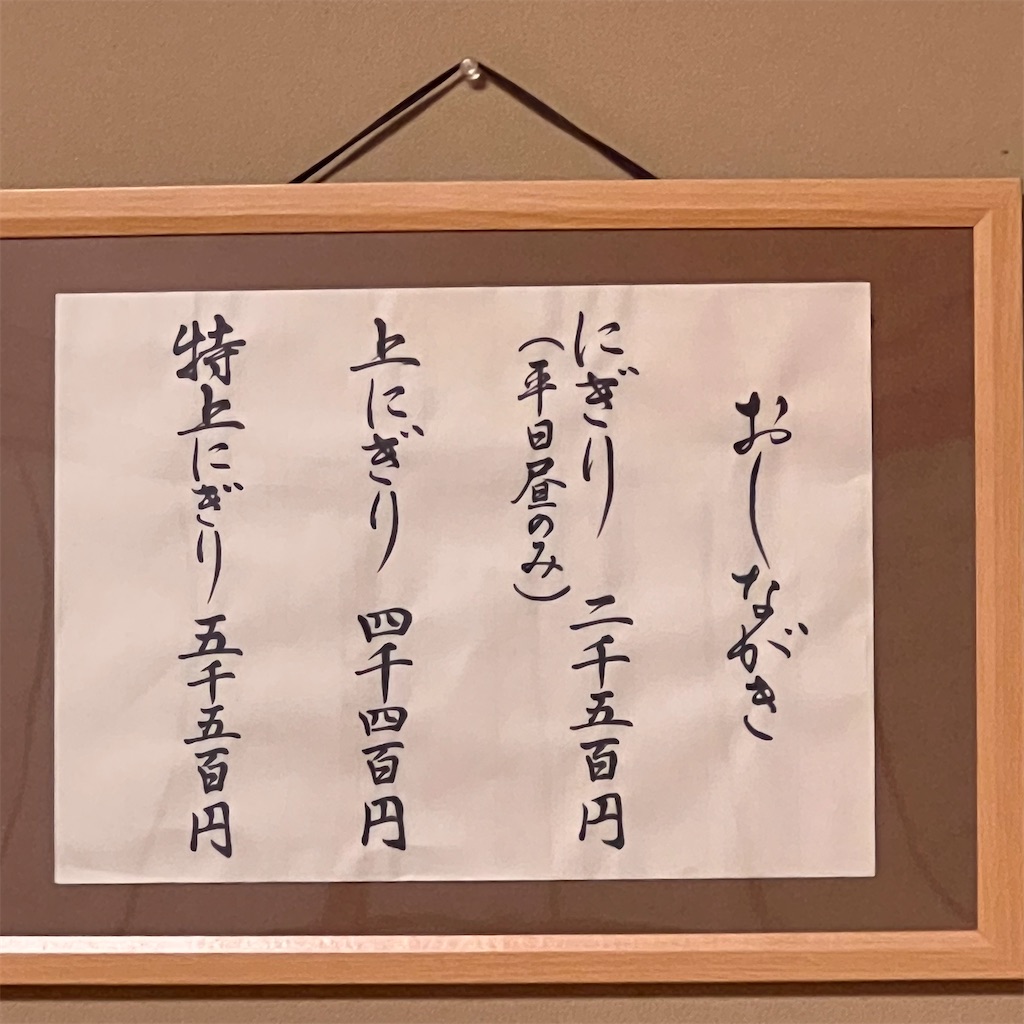 おしながき
にぎり 二千五百円
(平日昼のみ)
上にぎり 四千四百円
特上にぎり 五千五百円